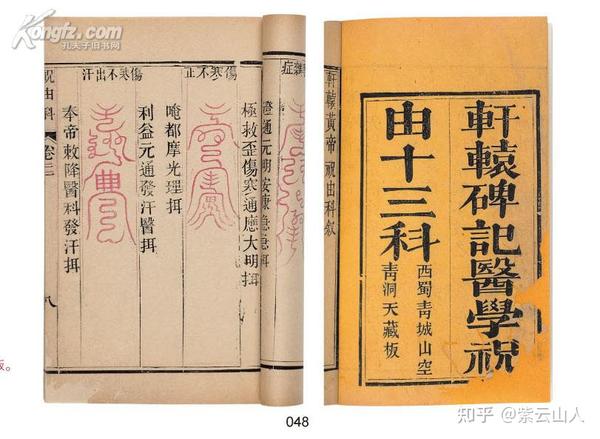 Kongfz.com
孔夫子旧书网
軒轅碑記醫學祝
由十三科
西蜀青城山空
青洞天藏板
軒轅黃帝祝由科敘
極救歪傷寒通應大明珥
傷寒不止
唵都摩光理珥
利益元通發汗醫珥
傷寒不出汗
奉帝敕降醫科發汗珥
祝由科
八
板。
048
知乎 @紫云山人